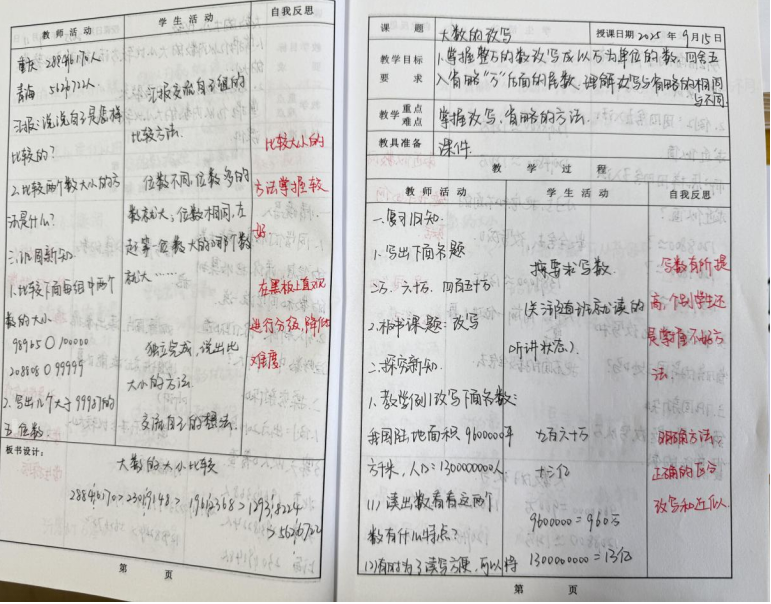 教师活动 学生活动 自我反思
重庆 28846170人
青海 5626722人
汇报:说说自己是怎样
比较的?
2.比较两个数大小的方
法是什么?
三、巩固新知
1.比较下面每组中两个
数的大小
98965○100000
99999
2.写出几个大于99987的
五位数
汇报交流自己组的
比较方法.
位数不同,位数多的
数就大;位数相同,左
起第一位数大的哪个数
就大……
独立完成,说出比
大小的方法.
交流自己的想法.
比较大小的
方法掌握较
好
在黑板上直观
进行分级,降低
难度
板书设计:
大数的大小比较
28846170>23019148>19612368>12938224
>5626722
第 页
课题 大数的改写 授课日期 2025年9月15日
教学目标 1.掌握整万的数改写成以万为单位的数,四舍五
要求 入省略“万”后面的尾数.理解改写与省略的相同
与不同
教学重点 掌握改写,省略的方法.
难点
教具准备 课件.
教学过程
教师活动 学生活动 自我反思
一.复习旧知.
1.写出下面各题
二万、六十万、四百五十万
2.板书课题:改写
二.探究新知.
1.教学例1改写下面各数:
我国陆地面积9600000平
方千米,人口1300000000人
(1)读出数看看这两个
数有什么特点?
(2)有时为了读写方便,可以将
按要求写数.
(关注边读就读的
听讲状态).
九百六十万
十三亿
9600000=960万
1300000000=13亿
写数有所提
高,个别学生还
是掌握不好方
法.
明确方法
正确的区分
改写和近似.
第 页